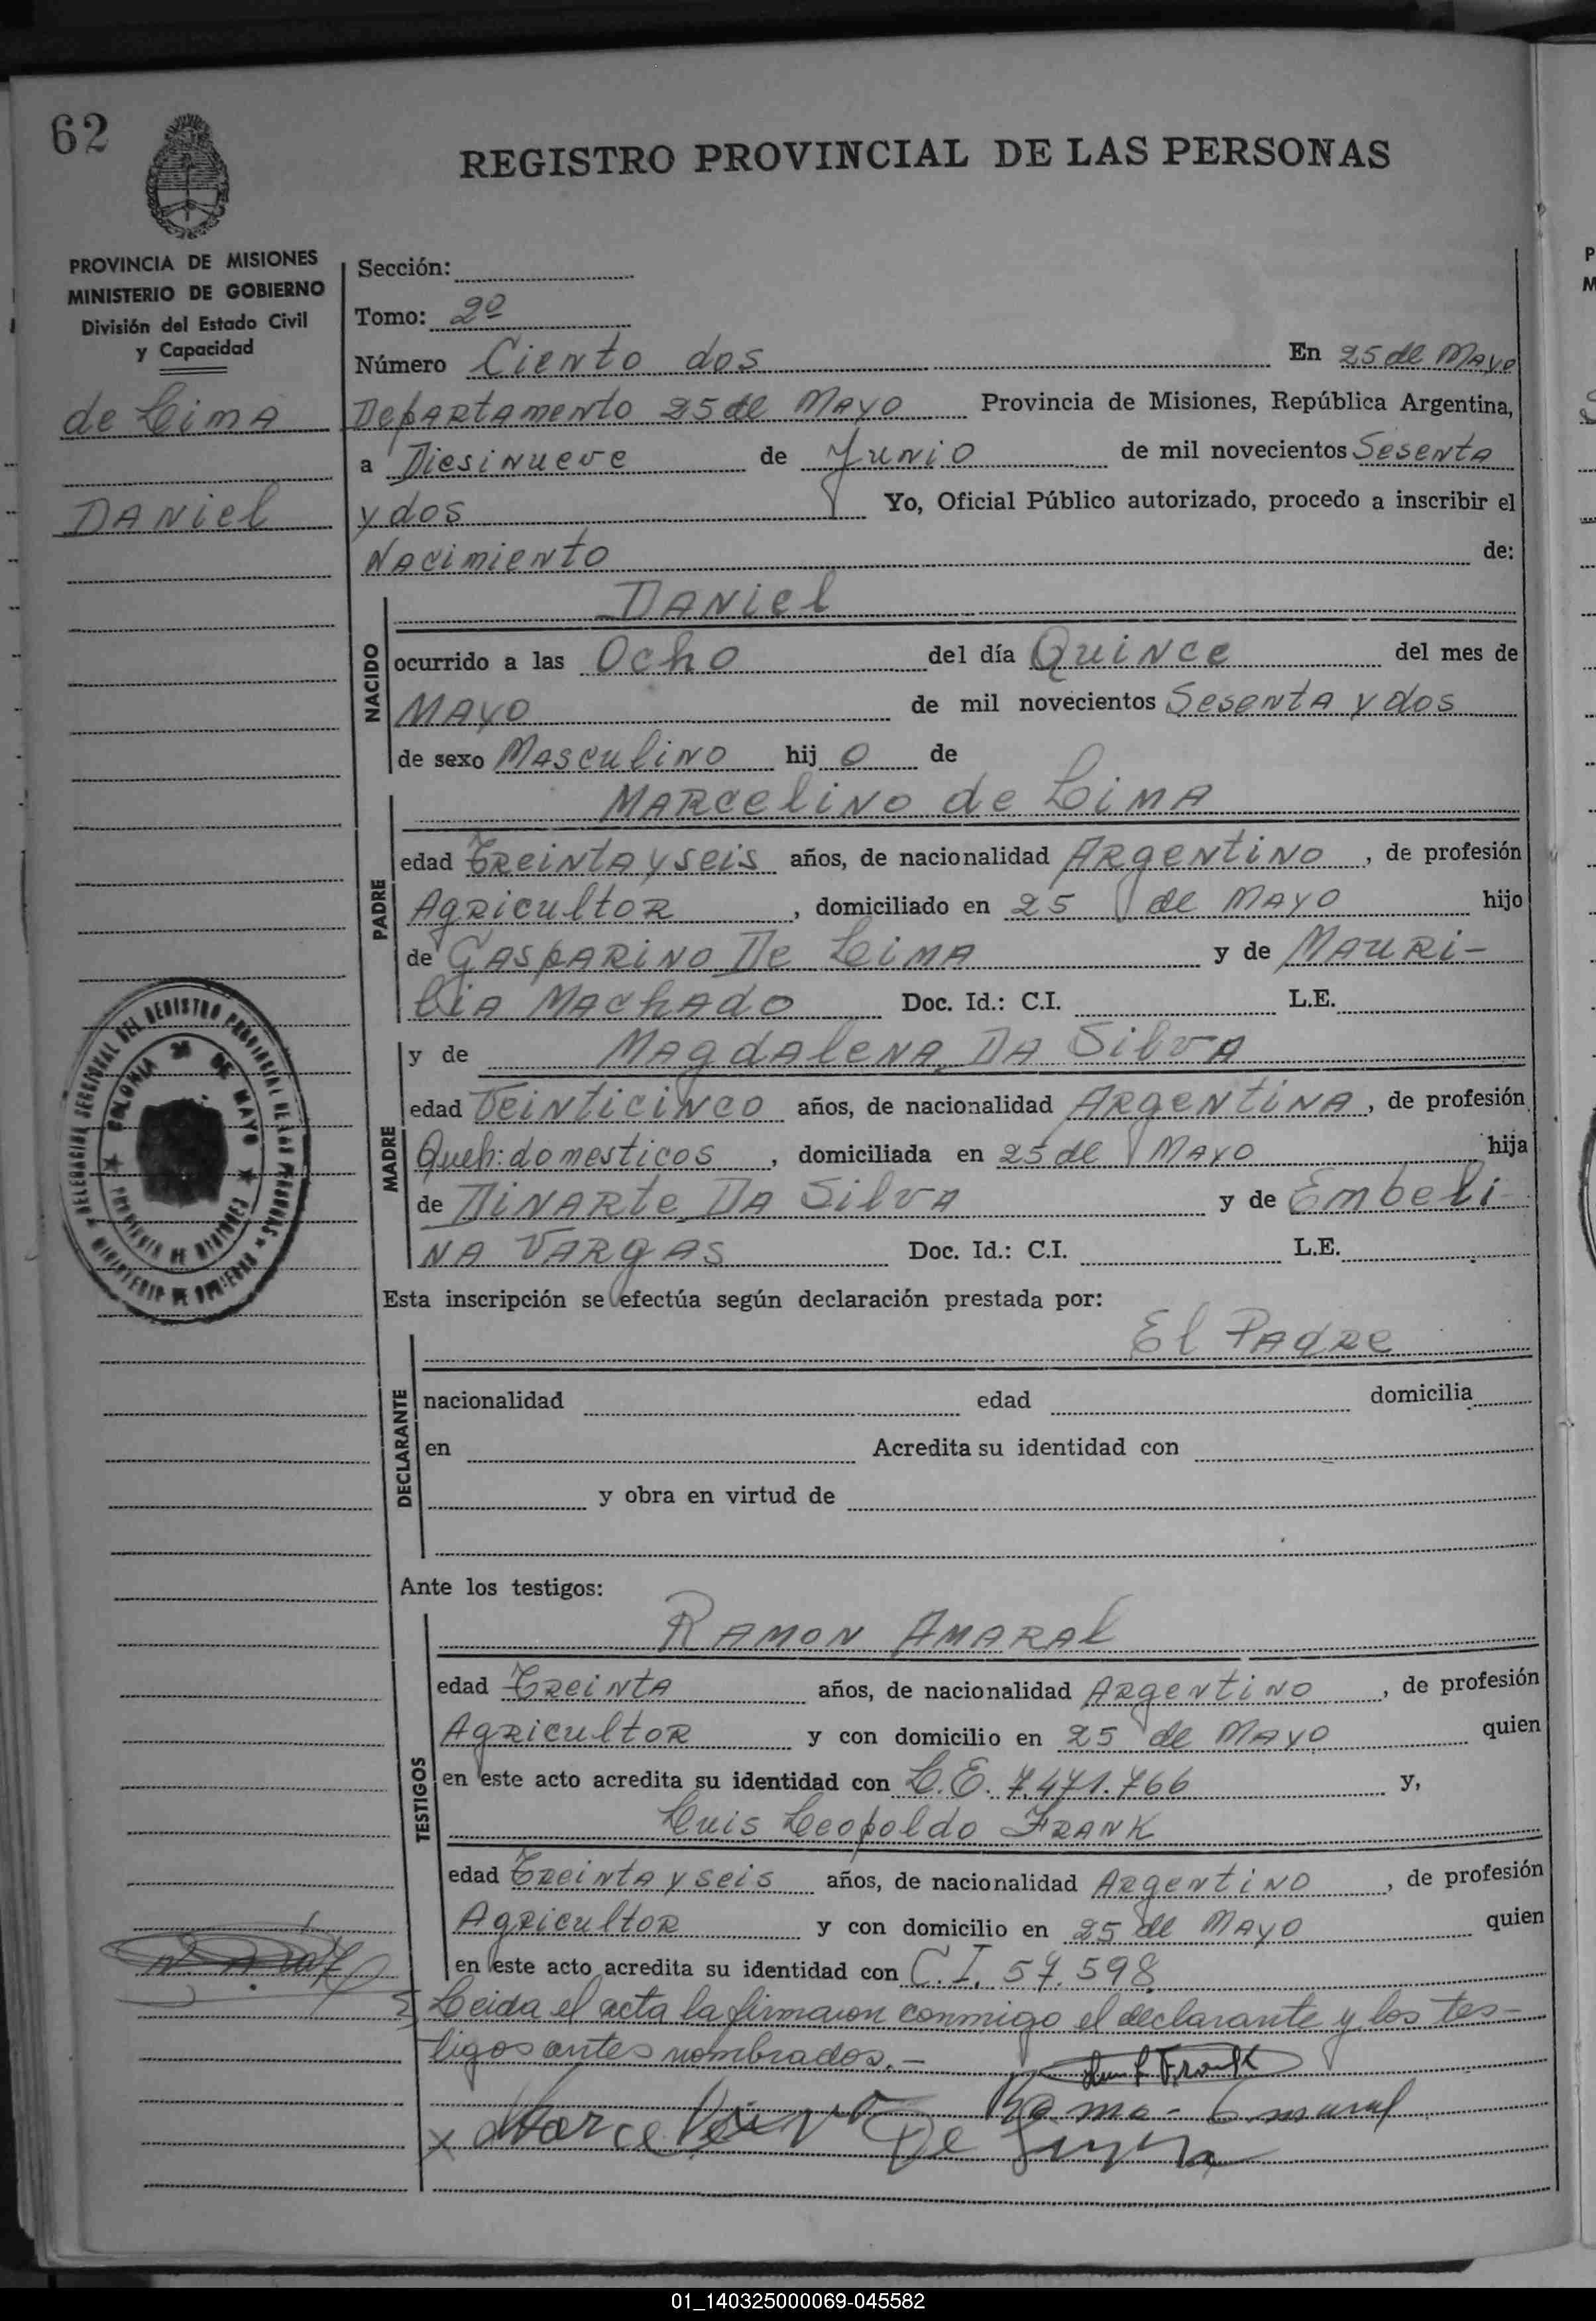 62
REGISTRO PROVINCIAL DE LAS PERSONAS
PROVINCIA DE MISIONES
MINISTERIO DE GOBIERNO
División del Estado Civil
y Capacidad
de Lima
DANiel
Sección:
Tomo: 2º
Número Ciento dos En 25 de Mayo
Departamento 25 de Mayo Provincia de Misiones, República Argentina,
a Diesinueve de Junio de mil novecientos Sesenta
y dos Yo, Oficial Público autorizado, procedo a inscribir el
Nacimiento de:
NACIDO
DANiel
ocurrido a las Ocho del día Quince del mes de
Mayo de mil novecientos Sesenta y dos
de sexo Masculino hij o de
PADRE
Marcelino de Lima
edad Treinta y seis años, de nacionalidad Argentino, de profesión
Agricultor, domiciliado en 25 de Mayo hijo
de Gasparino De Lima y de Mauri-
lia Machado Doc. Id.: C.I. L.E.
MADRE
y de Magdalena Da Silva
edad Veinticinco años, de nacionalidad Argentina, de profesión
Queh: domesticos, domiciliada en 25 de Mayo hija
de Dinarte Da Silva y de Embeli-
na Vargas Doc. Id.: C.I. L.E.
Esta inscripción se efectúa según declaración prestada por:
DECLARANTE
El Padre
nacionalidad edad domicilia
en Acredita su identidad con
y obra en virtud de
Ante los testigos:
TESTIGOS
Ramon Amaral
edad Treinta años, de nacionalidad Argentino, de profesión
Agricultor y con domicilio en 25 de Mayo quien
en este acto acredita su identidad con L.E. 7.471.766 y,
Luis Leopoldo Frank
edad Treinta y seis años, de nacionalidad Argentino, de profesión
Agricultor y con domicilio en 25 de Mayo quien
en este acto acredita su identidad con C.I. 57.598
Leida el acta la firmaron conmigo el declarante y los tes-
tigos antes nombrados.-
COLONIA 25 DE MAYO
PROVINCIA DE MISIONES
MINISTERIO DE GOBIERNO
01_140325000069-045582